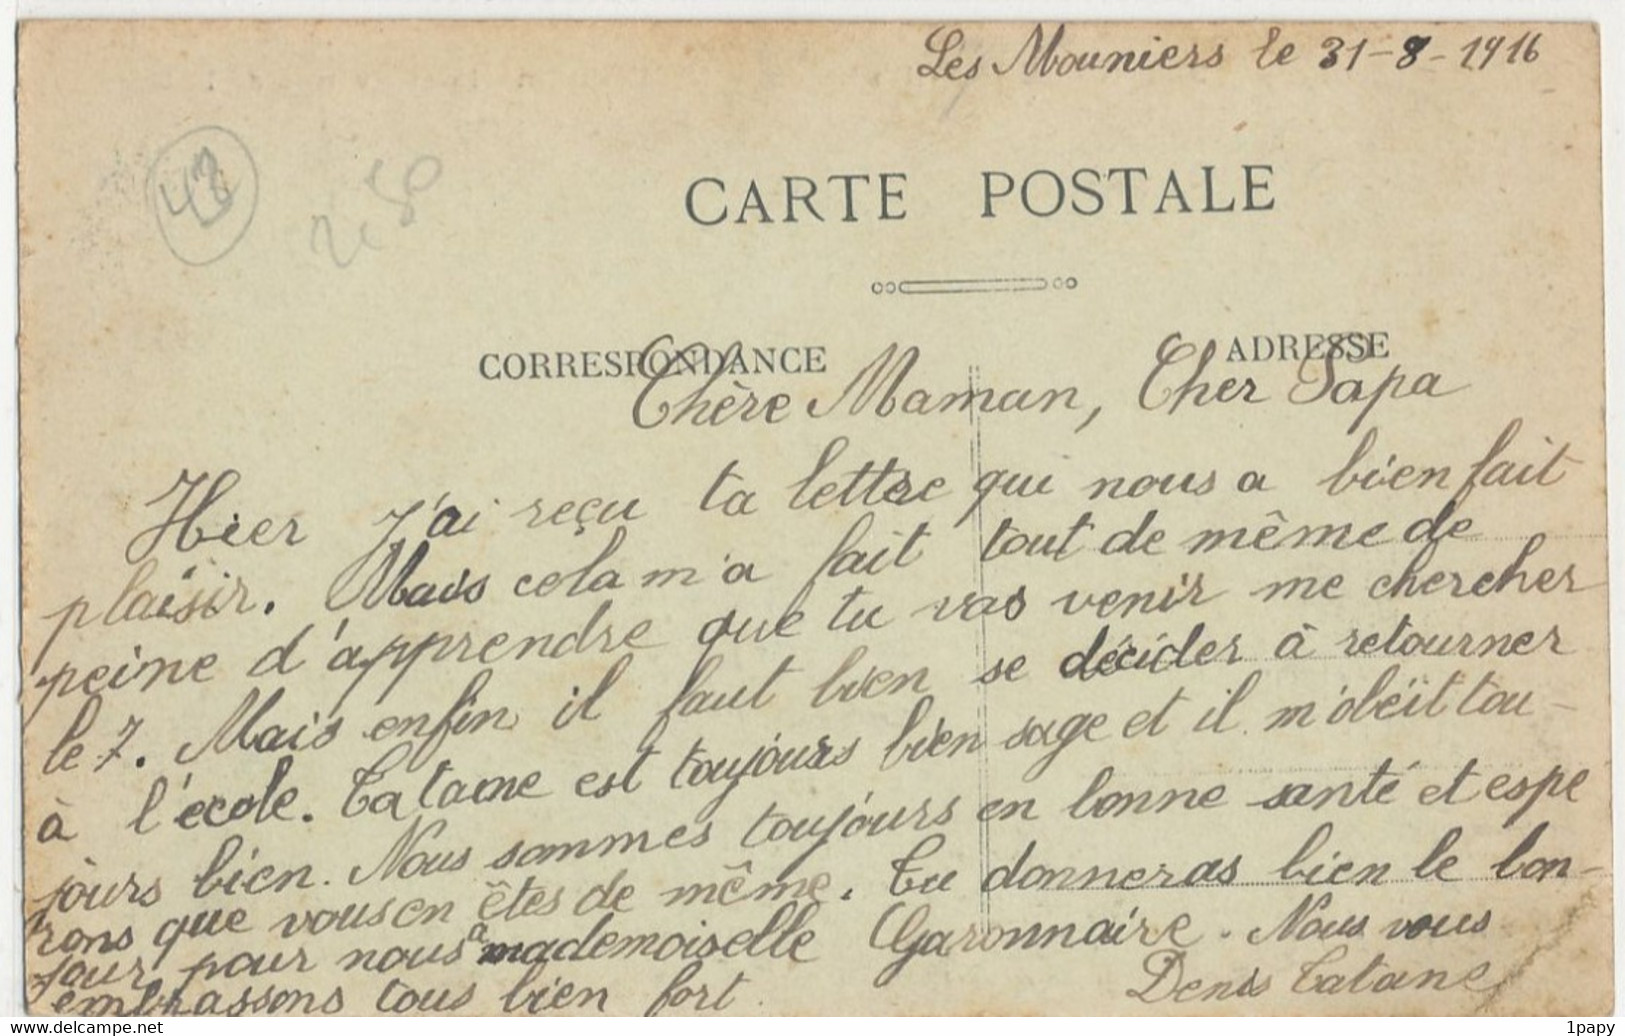 Les Mouniers le 31-8-1916
43
CARTE POSTALE
CORRESPONDANCE
ADRESSE
Chère Maman, Cher Papa
Hier j'ai reçu ta lettre qui nous a bien fait
plaisir. Mais cela m'a fait tout de même de
peine d'apprendre que tu vas venir me chercher
le 7. Mais enfin il faut bien se décider à retourner
à l'école. Tatane est toujours bien sage et il m'obéit tou-
jours bien. Nous sommes toujours en bonne santé et espe
rons que vous en êtes de même. Tu donneras bien le bon-
jour pour nous a mademoiselle Garonnaire. Nous vous
embrassons tous bien fort.
Denis Tatane
© delcampe.net
1papy